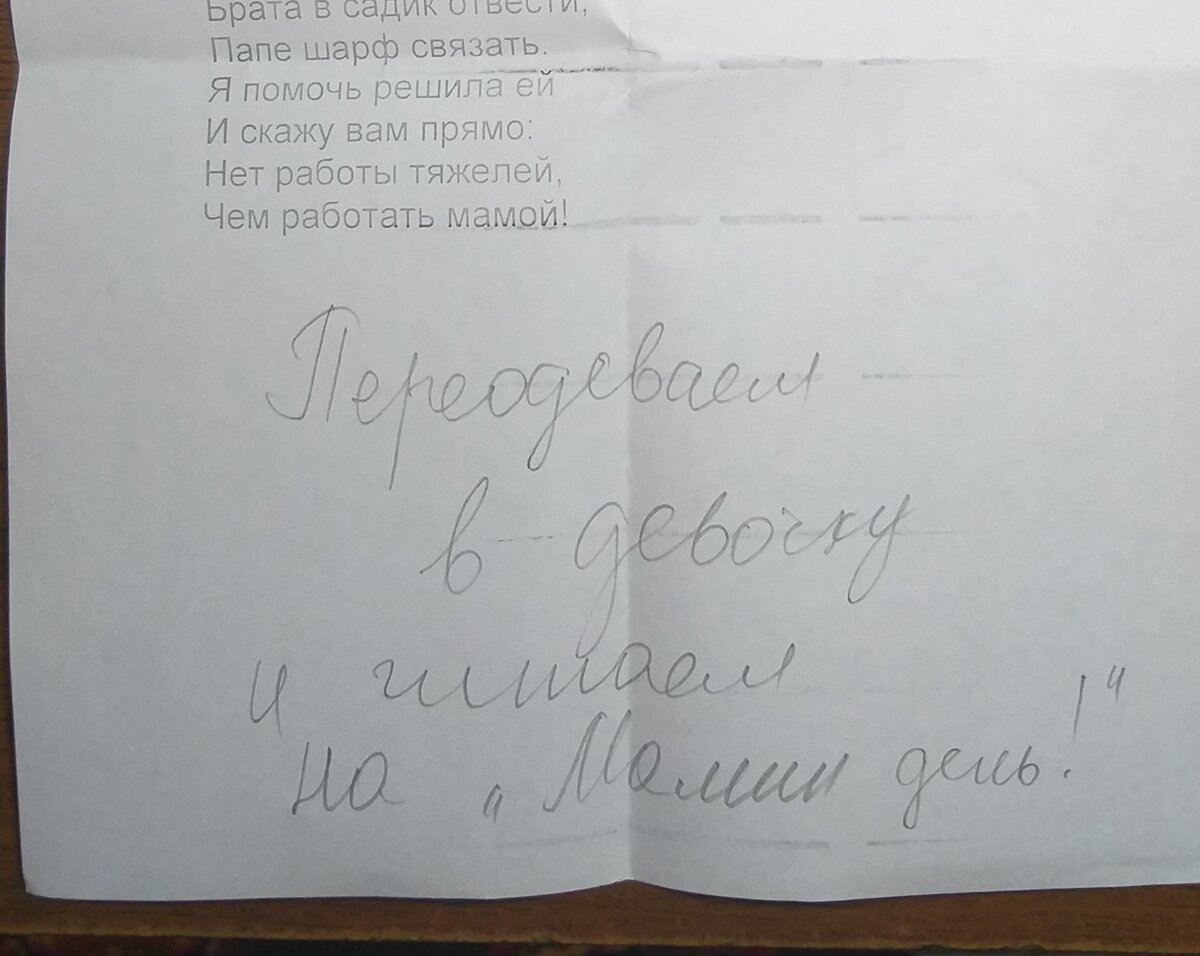 Брата в садик отвести,
Папе шарф связать.
Я помочь решила ей
И скажу вам прямо:
Нет работы тяжелей,
Чем работать мамой!
Переодеваем
в девочку
и читаем
на „Мамин день!"